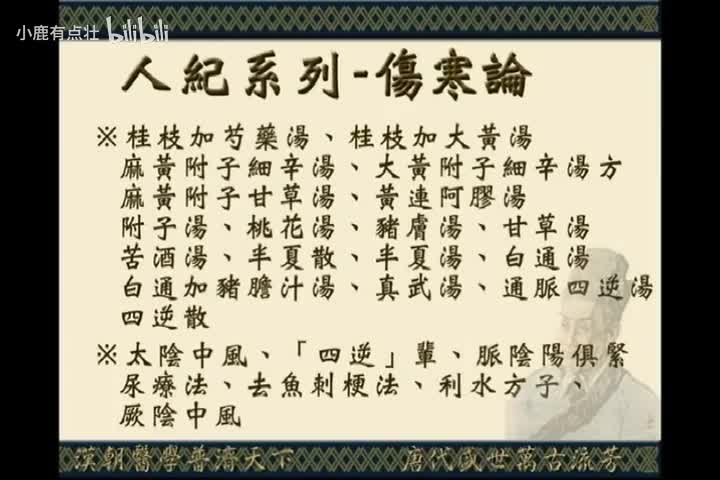 小鹿有点壮 bilibili
人紀系列-傷寒論
※桂枝加芍藥湯、桂枝加大黃湯
麻黃附子細辛湯、大黃附子細辛湯方
麻黃附子甘草湯、黃連阿膠湯
附子湯、桃花湯、豬膚湯、甘草湯
苦酒湯、半夏散、半夏湯、白通湯
白通加豬膽汁湯、真武湯、通脈四逆湯
四逆散
※太陰中風、「四逆」輩、脈陰陽俱緊
尿療法、去魚刺梗法、利水方子、
厥陰中風
漢朝醫學普濟天下 唐代盛世萬古流芳